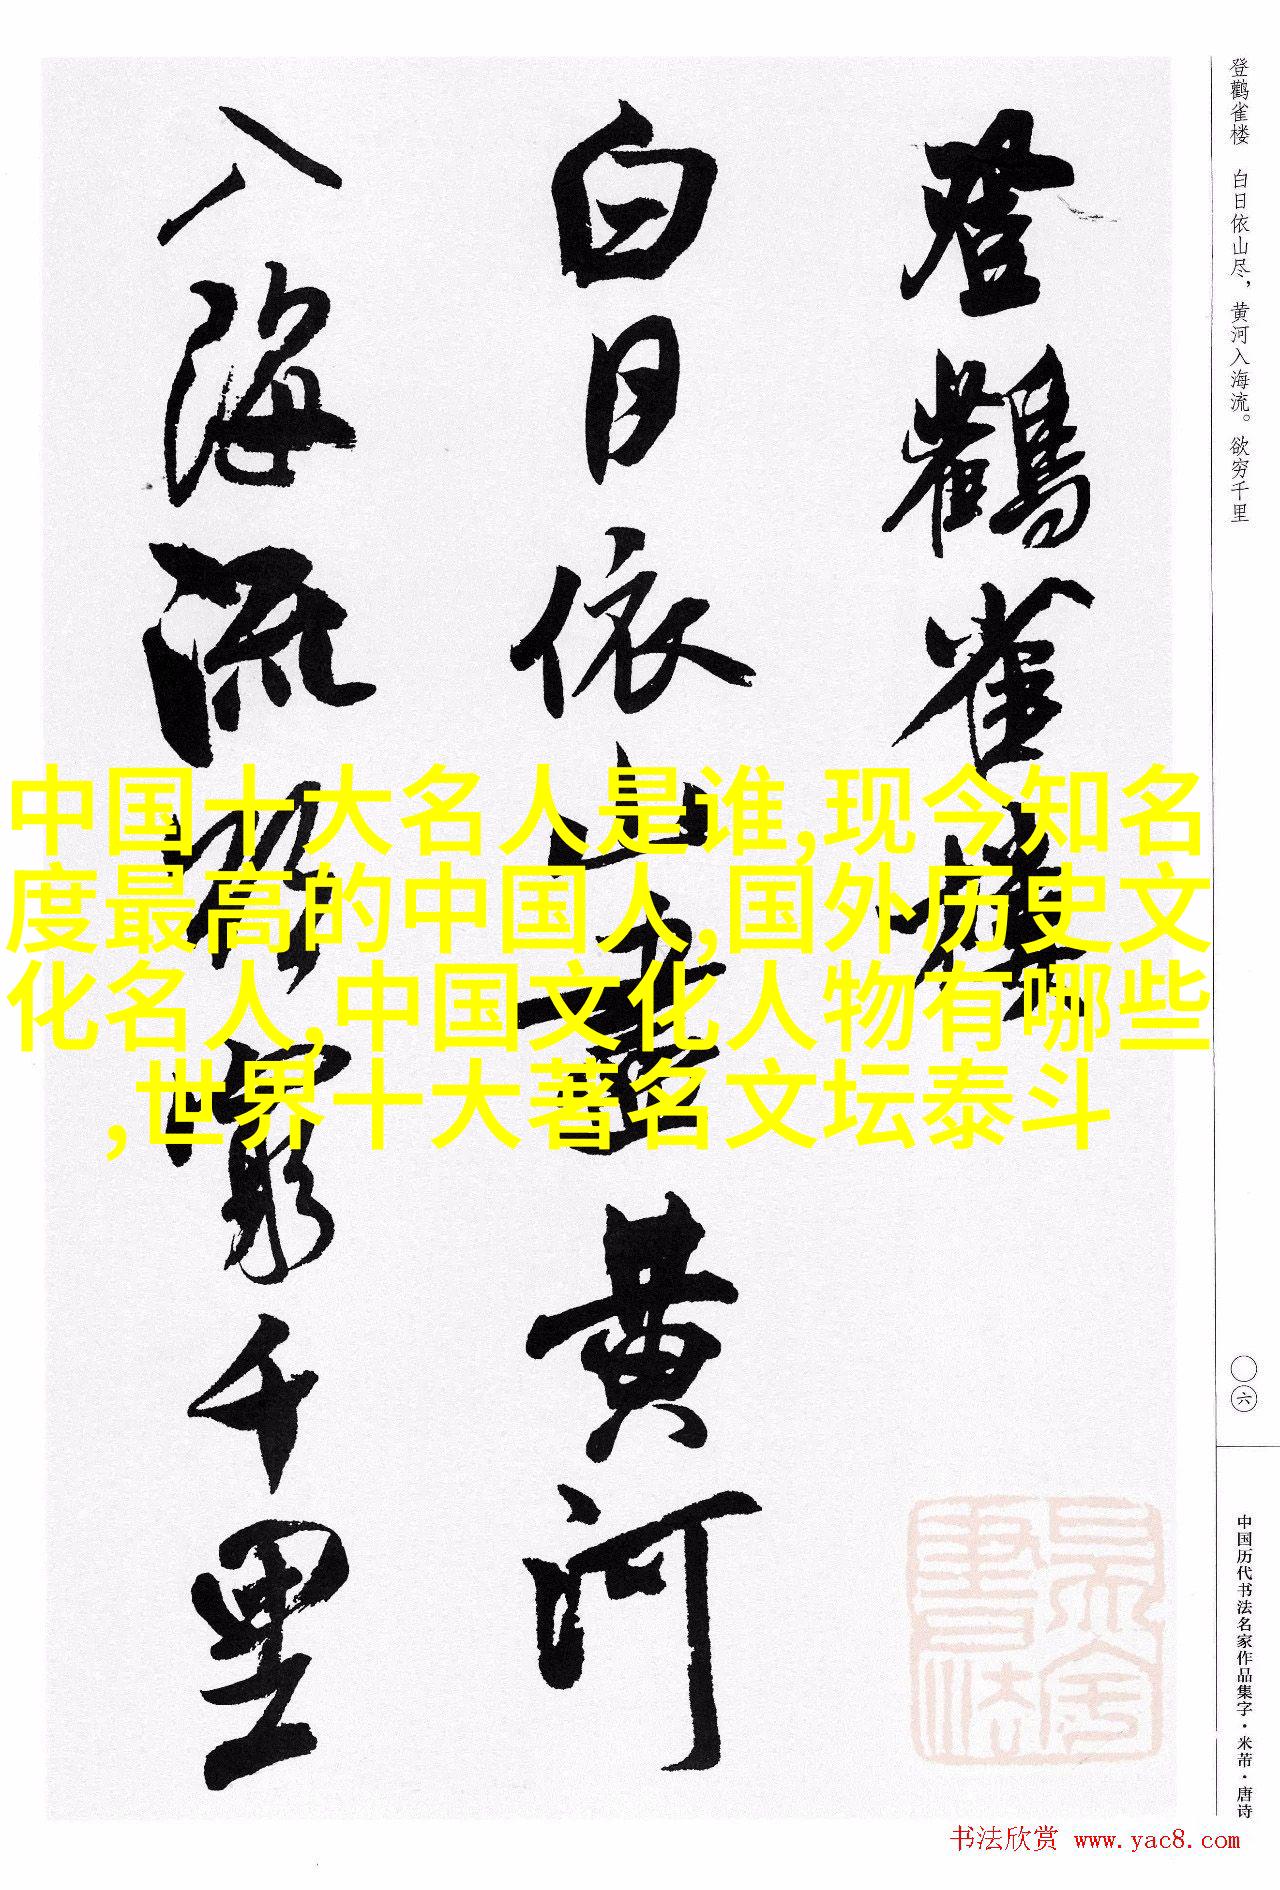 登鹳雀楼 白日依山尽，黄河入海流。欲穷千里
登鸛雀樓
白日依山盡黄河
入海流欲窮千里
中国十大名人是谁,现今知名
度最高的中国人,国外历史文
化名人,中国文化人物有哪些
,世界十大著名文坛泰斗
〇六
中国历代书法名家作品集字·米芾·唐诗
书法欣赏 www.yac8.com